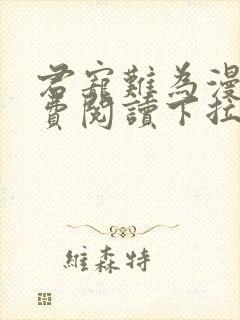 君寵難為漫
費閱讀下拉
維森特